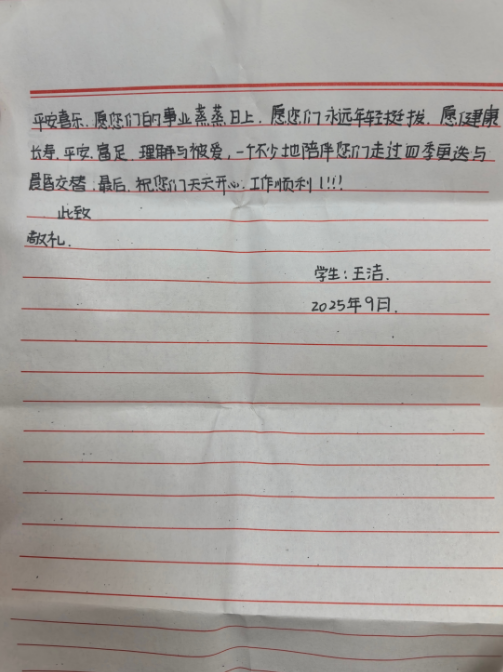 平安喜乐、愿您们的事业蒸蒸日上、愿您们永远年轻挺拔、愿健康
长寿、平安、富足、理解与被爱，一个不少地陪伴您们走过四季更迭与
晨昏交替、最后、祝您们天天开心、工作顺利!!!
此致
敬礼.
学生:王洁.
2025年9日.